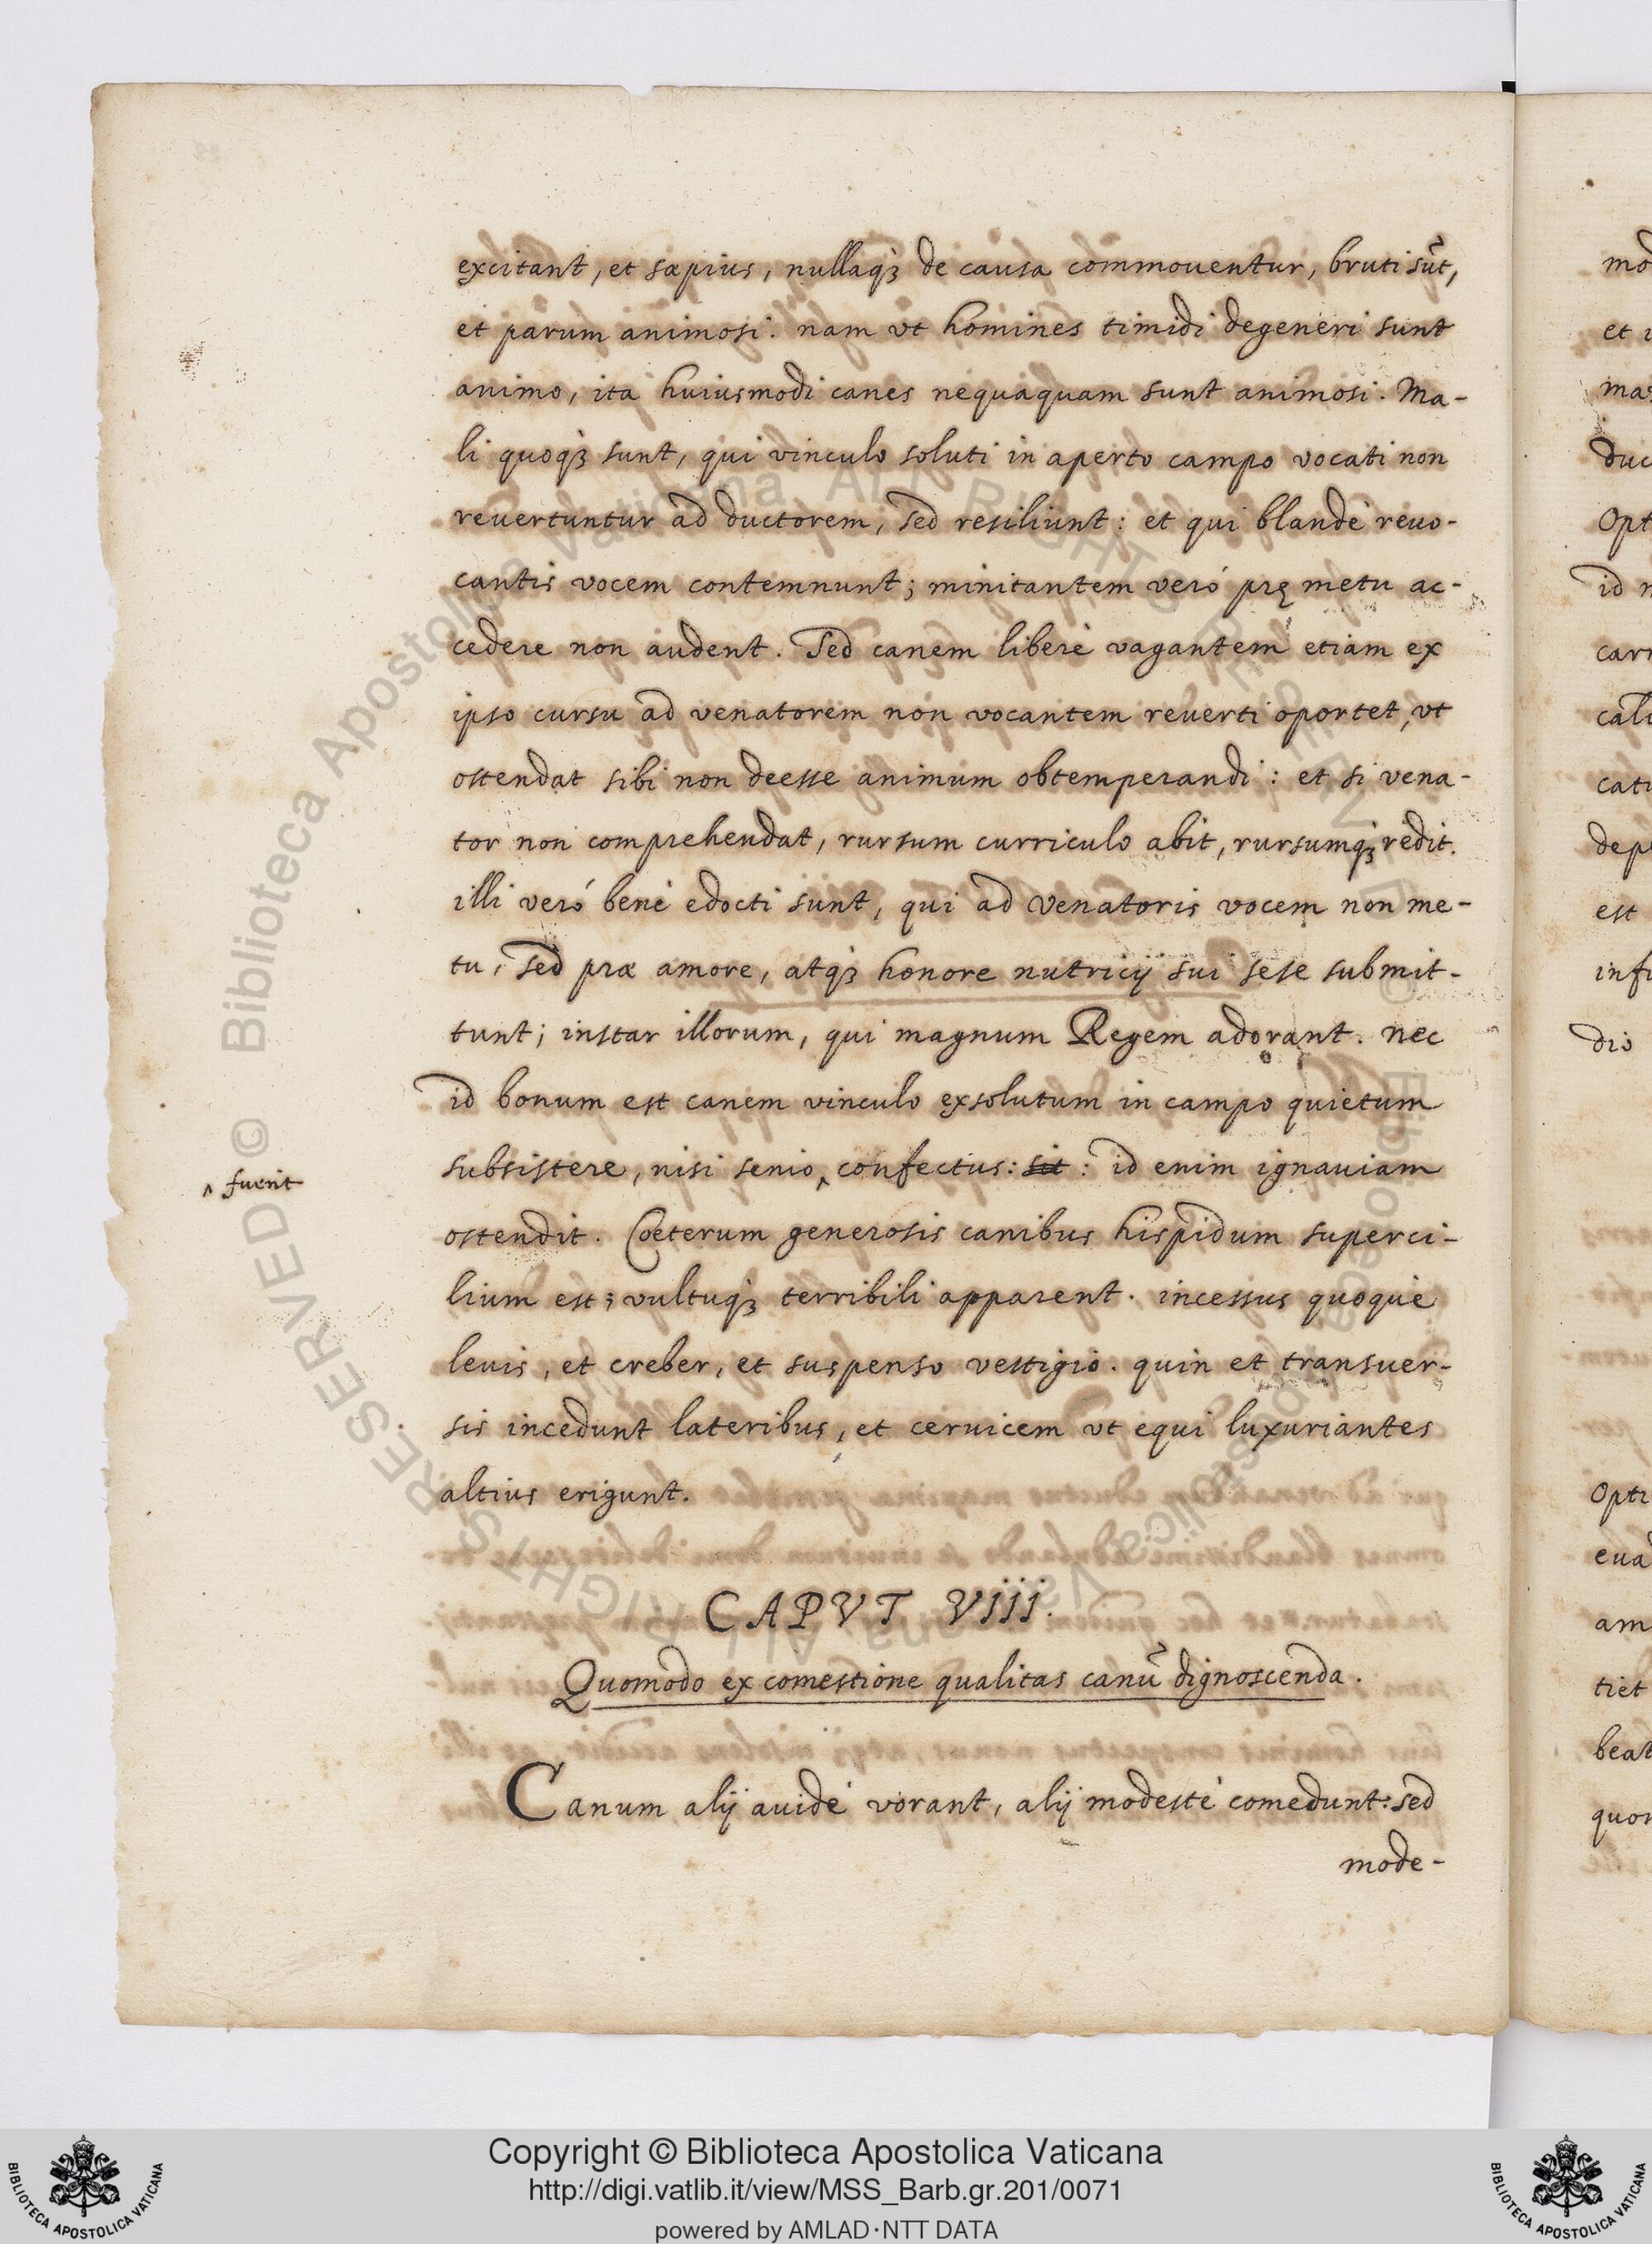 excitant, et sæpius, nullaqꝫ de causa commouentur, bruti sūt,
et parum animosi. nam vt homines timidi degeneri sunt
animo, ita huiusmodi canes nequaquam sunt animosi. Ma-
li quoqꝫ sunt, qui vinculo soluti in aperto campo vocati non
reuertuntur ad ductorem, sed resiliunt: et qui blandè reuo-
cantis vocem contemnunt; minitantem veró prę metu ac-
cedere non audent. Sed canem liberè vagantem etiam ex
ipso cursu ad venatorem non vocantem reuerti oportet, vt
ostendat sibi non deesse animum obtemperandi: et si vena-
tor non comprehendat, rursum curriculo abit, rursumqꝫ redit.
illi veró benè edocti sunt, qui ad venatoris vocem non me-
tu, sed præ amore, atqꝫ honore nutricij sui sese submit-
tunt; instar illorum, qui magnum Regem adorant. nec
id bonum est canem vinculo exsolutum in campo quietum
subsistere, nisi senio ‸ confectus: sit : id enim ignauiam
‸ fuerit
ostendit. Cœterum generosis canibus hispidum superci-
lium est; vultuqꝫ terribili apparent. incessus quoque
leuis, et creber, et suspenso vestigio. quin et transuer-
sis incedunt lateribus, et ceruicem vt equi luxuriantes
altius erigunt.
CAPVT VIII.
Quomodo ex comestione qualitas canū dignoscenda.
Canum alij auidè vorant, alij modestè comedunt: sed
mode-
mo
et
ma
duc
Opt
id
car
cali
cat
dep
est
inf
dio
Opti
eua
am
tiet
beat
quo
Copyright © Biblioteca Apostolica Vaticana
http://digi.vatlib.it/view/MSS_Barb.gr.201/0071
powered by AMLAD·NTT DATA
BIBLIOTECA APOSTOLICA VATICANA
BIBLIOTECA APOSTOLICA VATICANA
© Biblioteca Apostolica Vaticana ALL RIGHTS RESERVED
© Biblioteca Apostolica Vaticana ALL RIGHTS RESERVED